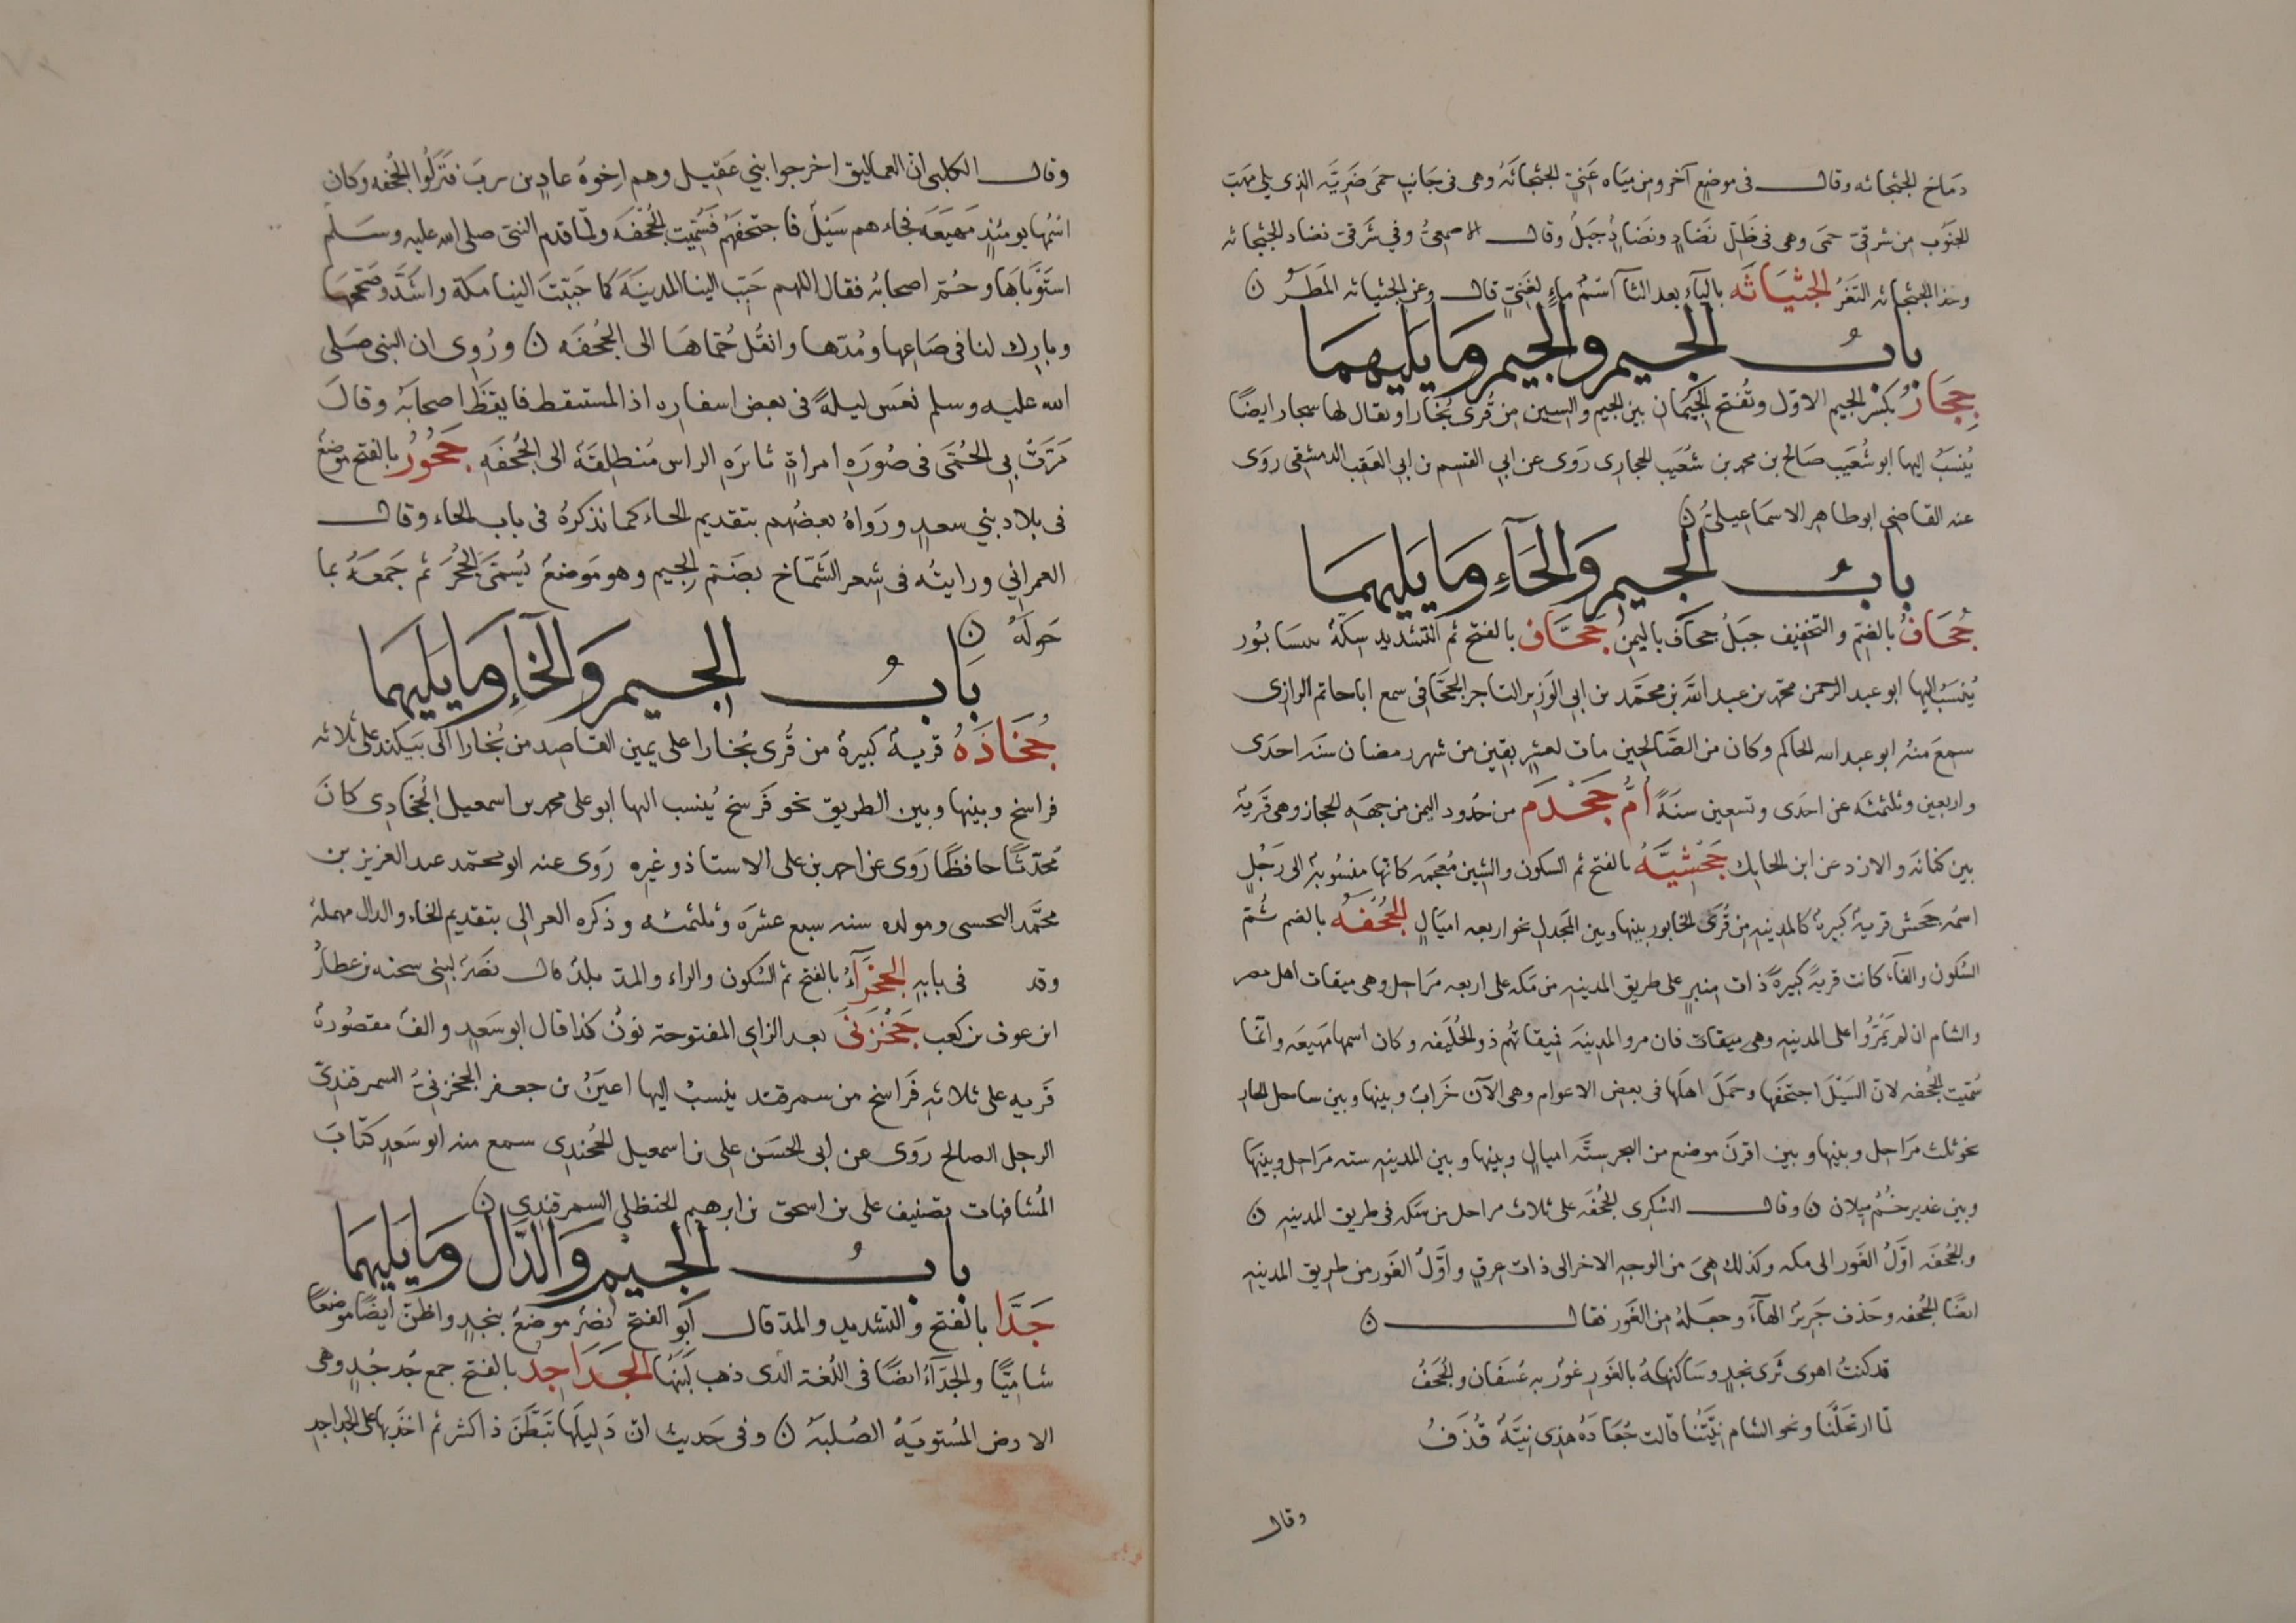 دماخ الجثجاثه وقال في موضع آخر ومن مياه غني الجثجاثة وهي في جانب حمى ضرية الذي يلي مهب
الجنوب من شرقي حمى وهي في ظل نضاد ونضاد جبل وقال الاصمعي وفي شرقي نضاد الجثجاثه
وحذا الجثجاثه النقر الجثياثه بالياء بعد الثآ اسم ماء لغني قال وعن الجثياثه المطر ن
باب الجيم والجيم وما يليهما
ججار بكسر الجيم الاول وتفتح الجيمان بين الجيم والسين من قرى بخارا ويقال لها سجار ايضا
ينسب إليها ابو شعيب صالح بن محمد بن شعيب الججارى روى عن ابي القسم بن ابي العقب الدمشقى روى
عنه القاضي ابو طاهر الاسماعيلي ن
باب الجيم والحآء وما يليهما
جحاف بالضم والتخفيف جبل جحاف باليمن جحاف بالفتح ثم التشديد سكة بنيسابور
ينسب إليها ابو عبد الرحمن محمد بن عبد الله بن محمد بن ابي الوزير التاجر الجحافي سمع ابا حاتم الرازي
سمع منه ابو عبد الله الحاكم وكان من الصالحين مات لعشر بقين من شهر رمضان سنه احدى
واربعين وثلثمئه عن احدى وتسعين سنة أم جحدم من حدود اليمن من جهه الحجاز وهي قرية
بين كنانة والازد عن ابن الحايك جحشية بالفتح ثم السكون والشين معجمه كانها منسوبة الى رجل
اسمه جحش قرية كبيرة كالمدينه من قرى الخابور بينها وبين المجدل نحو اربعه اميال الجحفه بالضم ثم
السكون والفآء كانت قرية كبيرة ذات منبر على طريق المدينه من مكه على اربعه مراحل وهي ميقات اهل مصر
والشام ان لم يمروا على المدينه وهى ميقات فان مروا المدينه فميقاتهم ذو الحليفه وكان اسمها مهيعه وانما
سميت الجحفه لان السيل اجتحفها وحمل اهلها في بعض الاعوام وهي الآن خراب وبينها وبين ساحل الجار
نحو ثلث مراحل وبينها وبين اقرن موضع من البحر ستة اميال وبينها وبين المدينه سته مراحل وبينها
وبين غدير خم ميلان ن وقال السكري الجحفه على ثلاث مراحل من مكه في طريق المدينه ن
والجحفه اول الغور الى مكه وكذلك هي من الوجه الاخر الى ذات عرق واول الغور من طريق المدينه
ايضا الجحفه وحذف جرير الهآء وجعله من الغور فقال ن
قد كنت اهوى ثرى نجد وساكنه بالغور غور به عسفان والجحف
لما ارتحلنا ونحو الشام نيتنا قالت جعادة هذي نية قذف
وقال
وقال الكلبي ان العماليق اخرجوا بني عقيل وهم اخوة عاد بن رب فنزلوا الجحفه وكان
اسمها يومئذ مهيعه فجاءهم سيل فاجتحفهم فسميت الجحفة ولما قدم النبي صلى الله عليه وسلم
استوبأها وحم اصحابه فقال اللهم حبب الينا المدينة كما حببت الينا مكة واشد وصححها
وبارك لنا في صاعها ومدها وانقل حماها الى الجحفه ن وروى ان النبي صلى
الله عليه وسلم نعس ليلة في بعض اسفاره اذ استيقظ فايقظ اصحابه وقال
مرت بي الحمى في صورة امراة ثائرة الراس منطلقة الى الجحفه جحور بالفتح موضع
في بلاد بني سعد ورواه بعضهم بتقديم الحاء كما نذكره في باب الحاء وقال
العمراني ورايته في شعر الشماخ بضم الجيم وهو موضع يسمى الجحر ثم جمعه بما
حوله ن
باب الجيم والخآء وما يليهما
جخاذه قرية كبيرة من قرى بخارا على يمين القاصد من بخارا الى بيكند على ثلاثه
فراسخ وبينها وبين الطريق نحو فرسخ ينسب اليها ابو على محمد بن اسمعيل الجخادى كان
محدثا حافظا روى عن احمد بن على الاستاذ وغيره روى عنه ابو محمد عبد العزيز بن
محمد النخشبى ومولده سنه سبع عشرة وثلثمئه وذكره العمراني بتقديم الخاء والدال مهملة
وقد في بابه الجخرآء بالفتح ثم السكون والراء والمد بلد قال نصر لبنى سحنه بن عطارد
ابن عوف بن كعب جخزنى بعد الزاي المفتوحة نون كذا قال ابو سعد والف مقصورة
قريه على ثلاثه فراسخ من سمرقند ينسب إليها اعين بن جعفر الجخزني السمرقندي
الرجل الصالح روى عن ابي الحسن علي بن اسمعيل الخجندي سمع منه ابو سعد كتاب
المشافهات تصنيف علي بن اسحق بن ابرهيم الحنظلي السمرقندي ن
باب الجيم والدال وما يليهما
جدا بالفتح والتشديد والمد قال ابو الفتح نصر موضع بنجد واظن ايضا موضعا
شاميا والجدآء ايضا في اللغة الذى ذهب لبنها الجداجد بالفتح جمع جدجد وهى
الارض المستوية الصلبة ن وفي حديث ان دليلها تبطن ذا كشر ثم اخذ بها على الجداجد